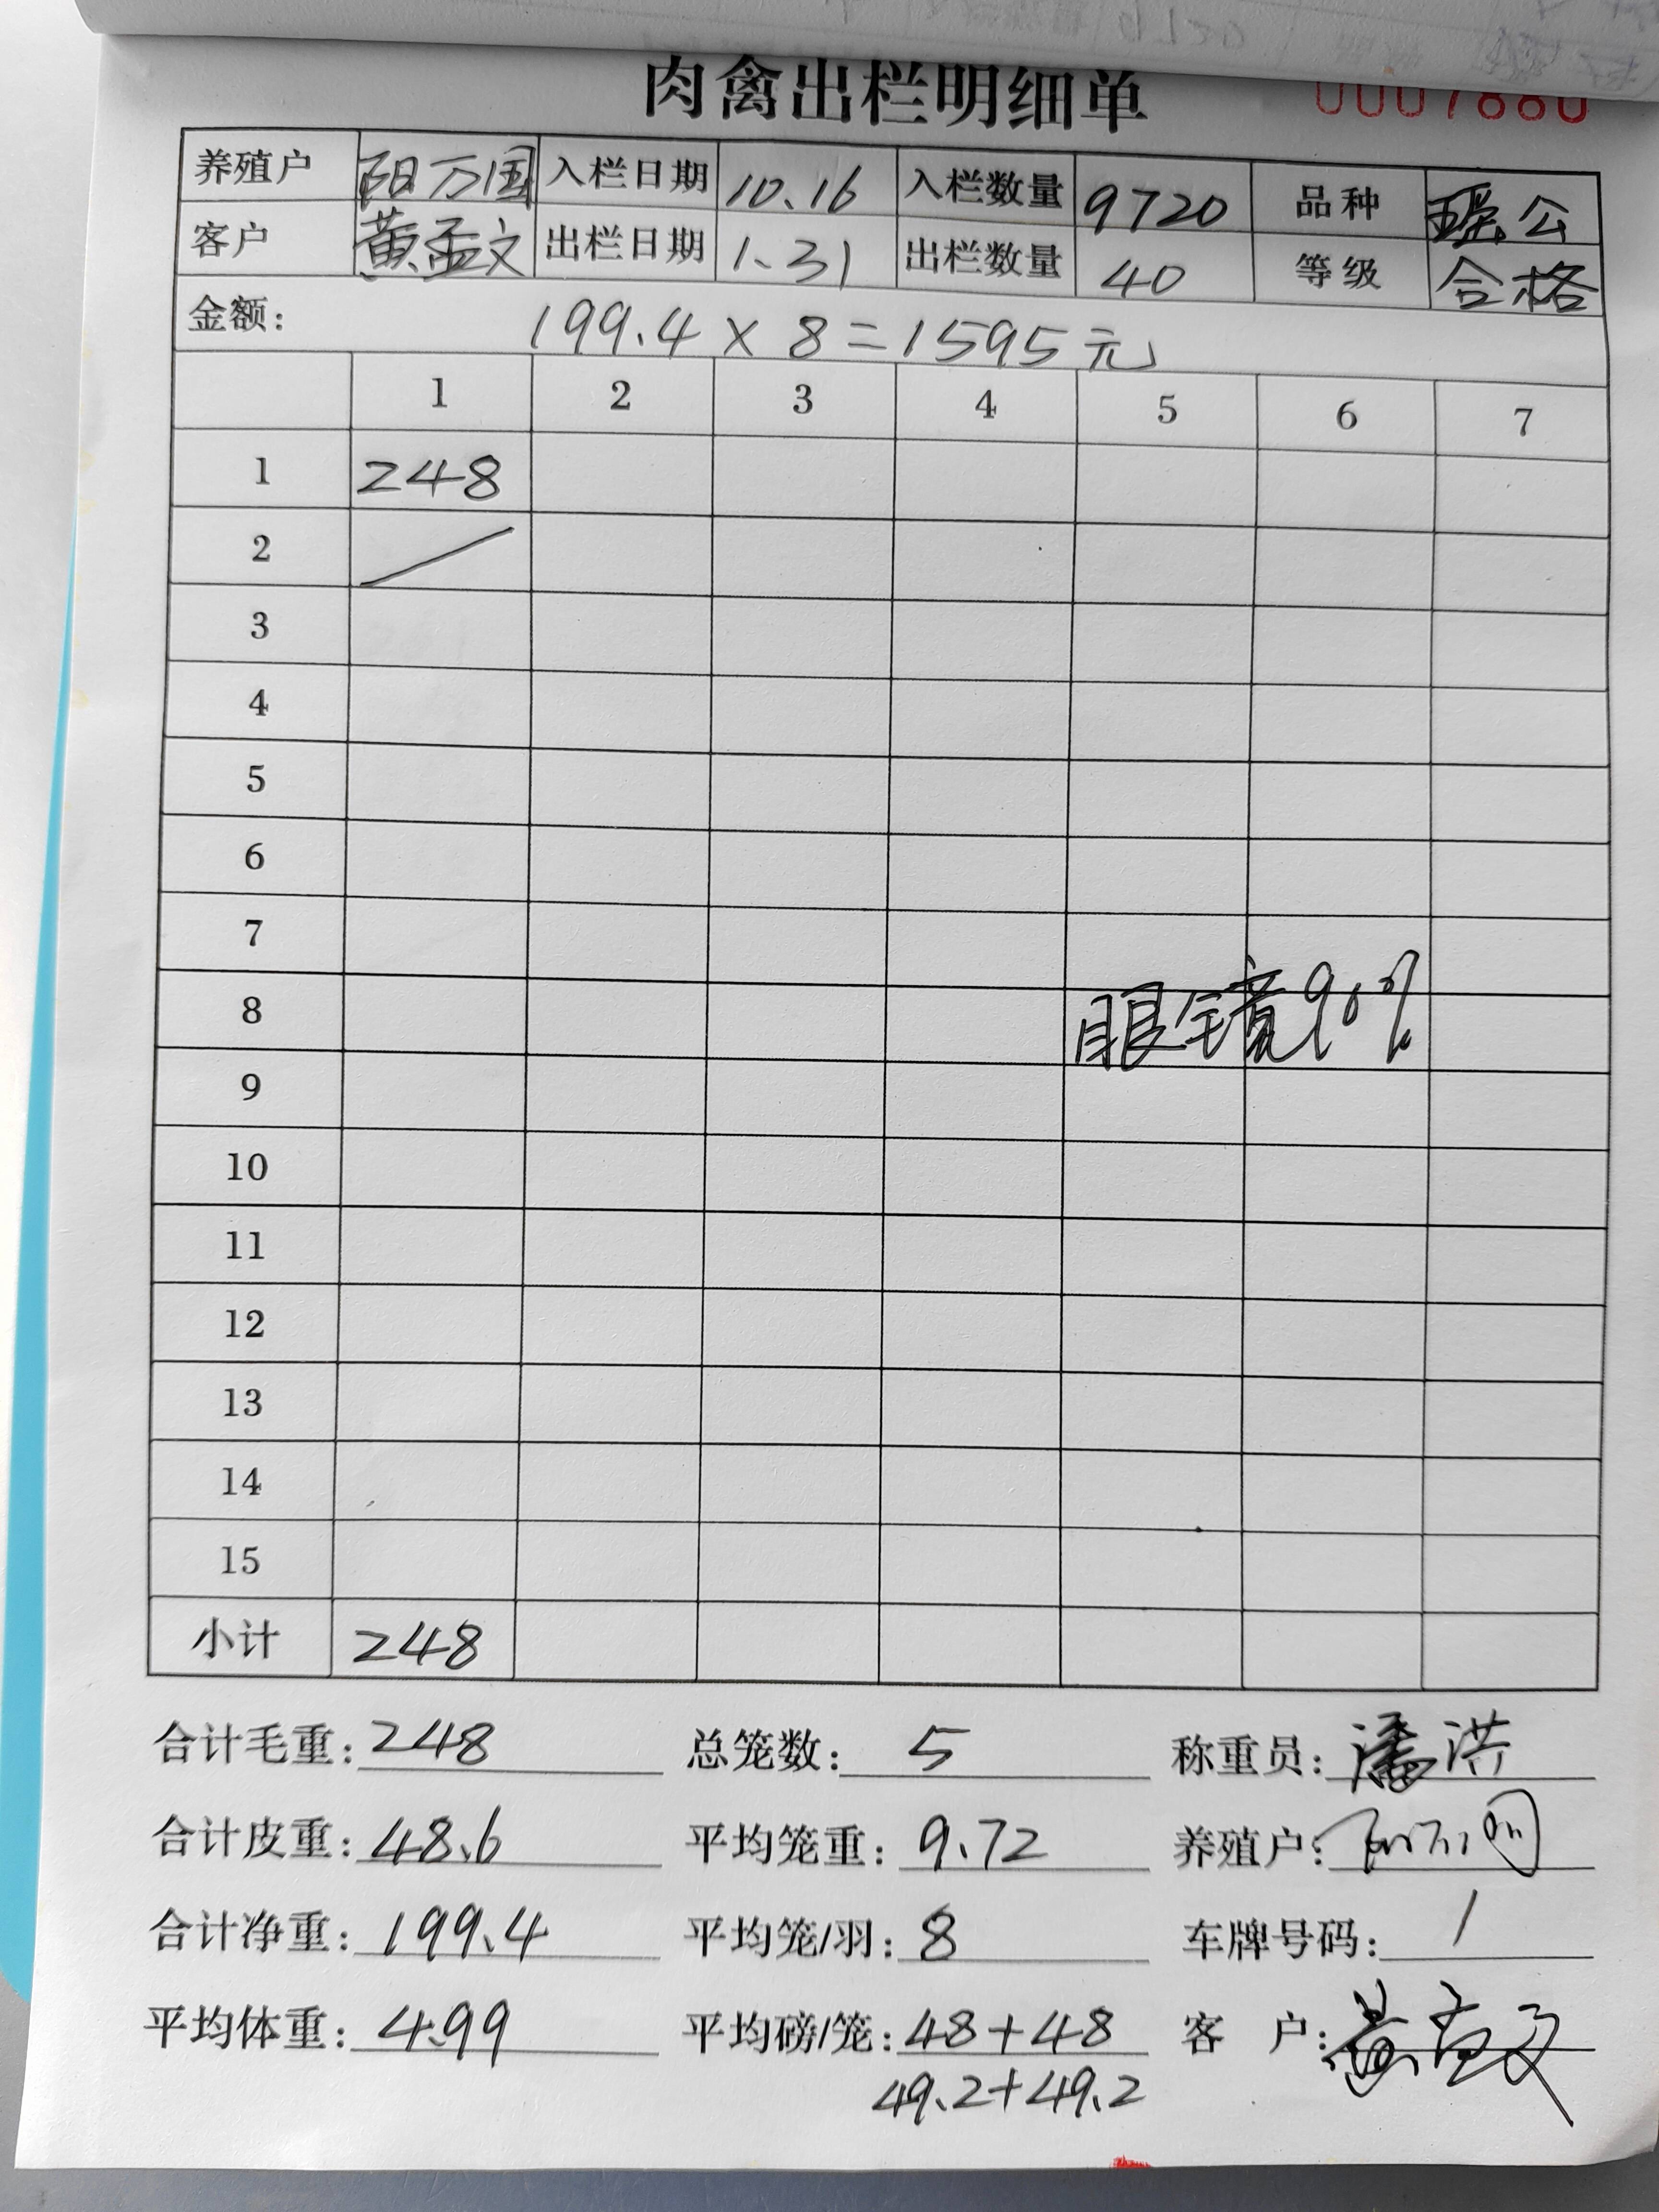 肉禽出栏明细单 0007880
养殖户 阳万国 入栏日期 10.16 入栏数量 9720 品种 瑶公
客户 黄孟文 出栏日期 1.31 出栏数量 40 等级 合格
金额: 199.4×8=1595元
1 2 3 4 5 6 7
1 248
2
3
4
5
6
7
8 眼镜90%
9
10
11
12
13
14
15
小计 248
合计毛重: 248 总笼数: 5 称重员: 潘洪
合计皮重: 48.6 平均笼重: 9.72 养殖户:
合计净重: 199.4 平均笼/羽: 8 车牌号码: /
平均体重: 4.99 平均磅/笼: 48+48 客 户: 黄孟文
49.2+49.2